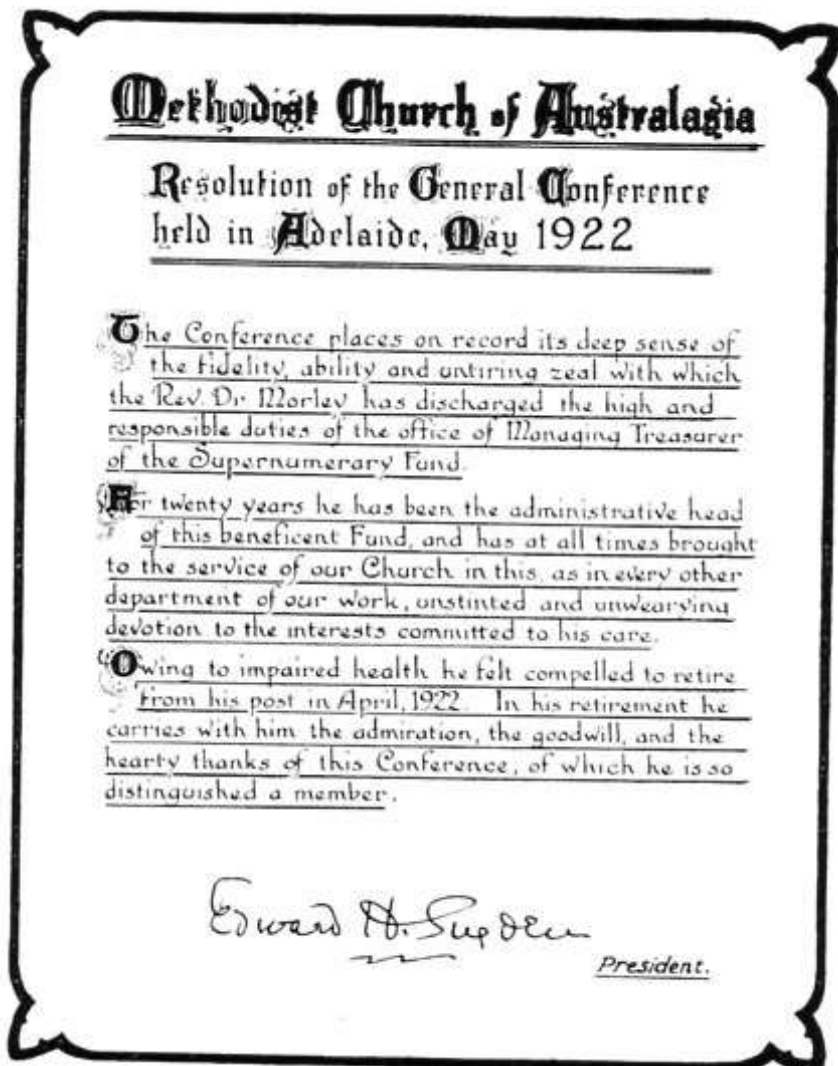 Methodist Church of Australasia
Resolution of the General Conference
held in Adelaide, May 1922
The Conference places on record its deep sense of
the fidelity, ability and untiring zeal with which
the Rev. Dr Morley has discharged the high and
responsible duties of the office of Managing Treasurer
of the Supernumerary Fund.
For twenty years he has been the administrative head
of this beneficent Fund, and has at all times brought
to the service of our Church in this, as in every other
department of our work, unstinted and unwearying
devotion to the interests committed to his care.
Owing to impaired health he felt compelled to retire
from his post in April, 1922. In his retirement he
carries with him the admiration, the goodwill, and the
hearty thanks of this Conference, of which he is so
distinguished a member.
Edward H. Sugden
President.